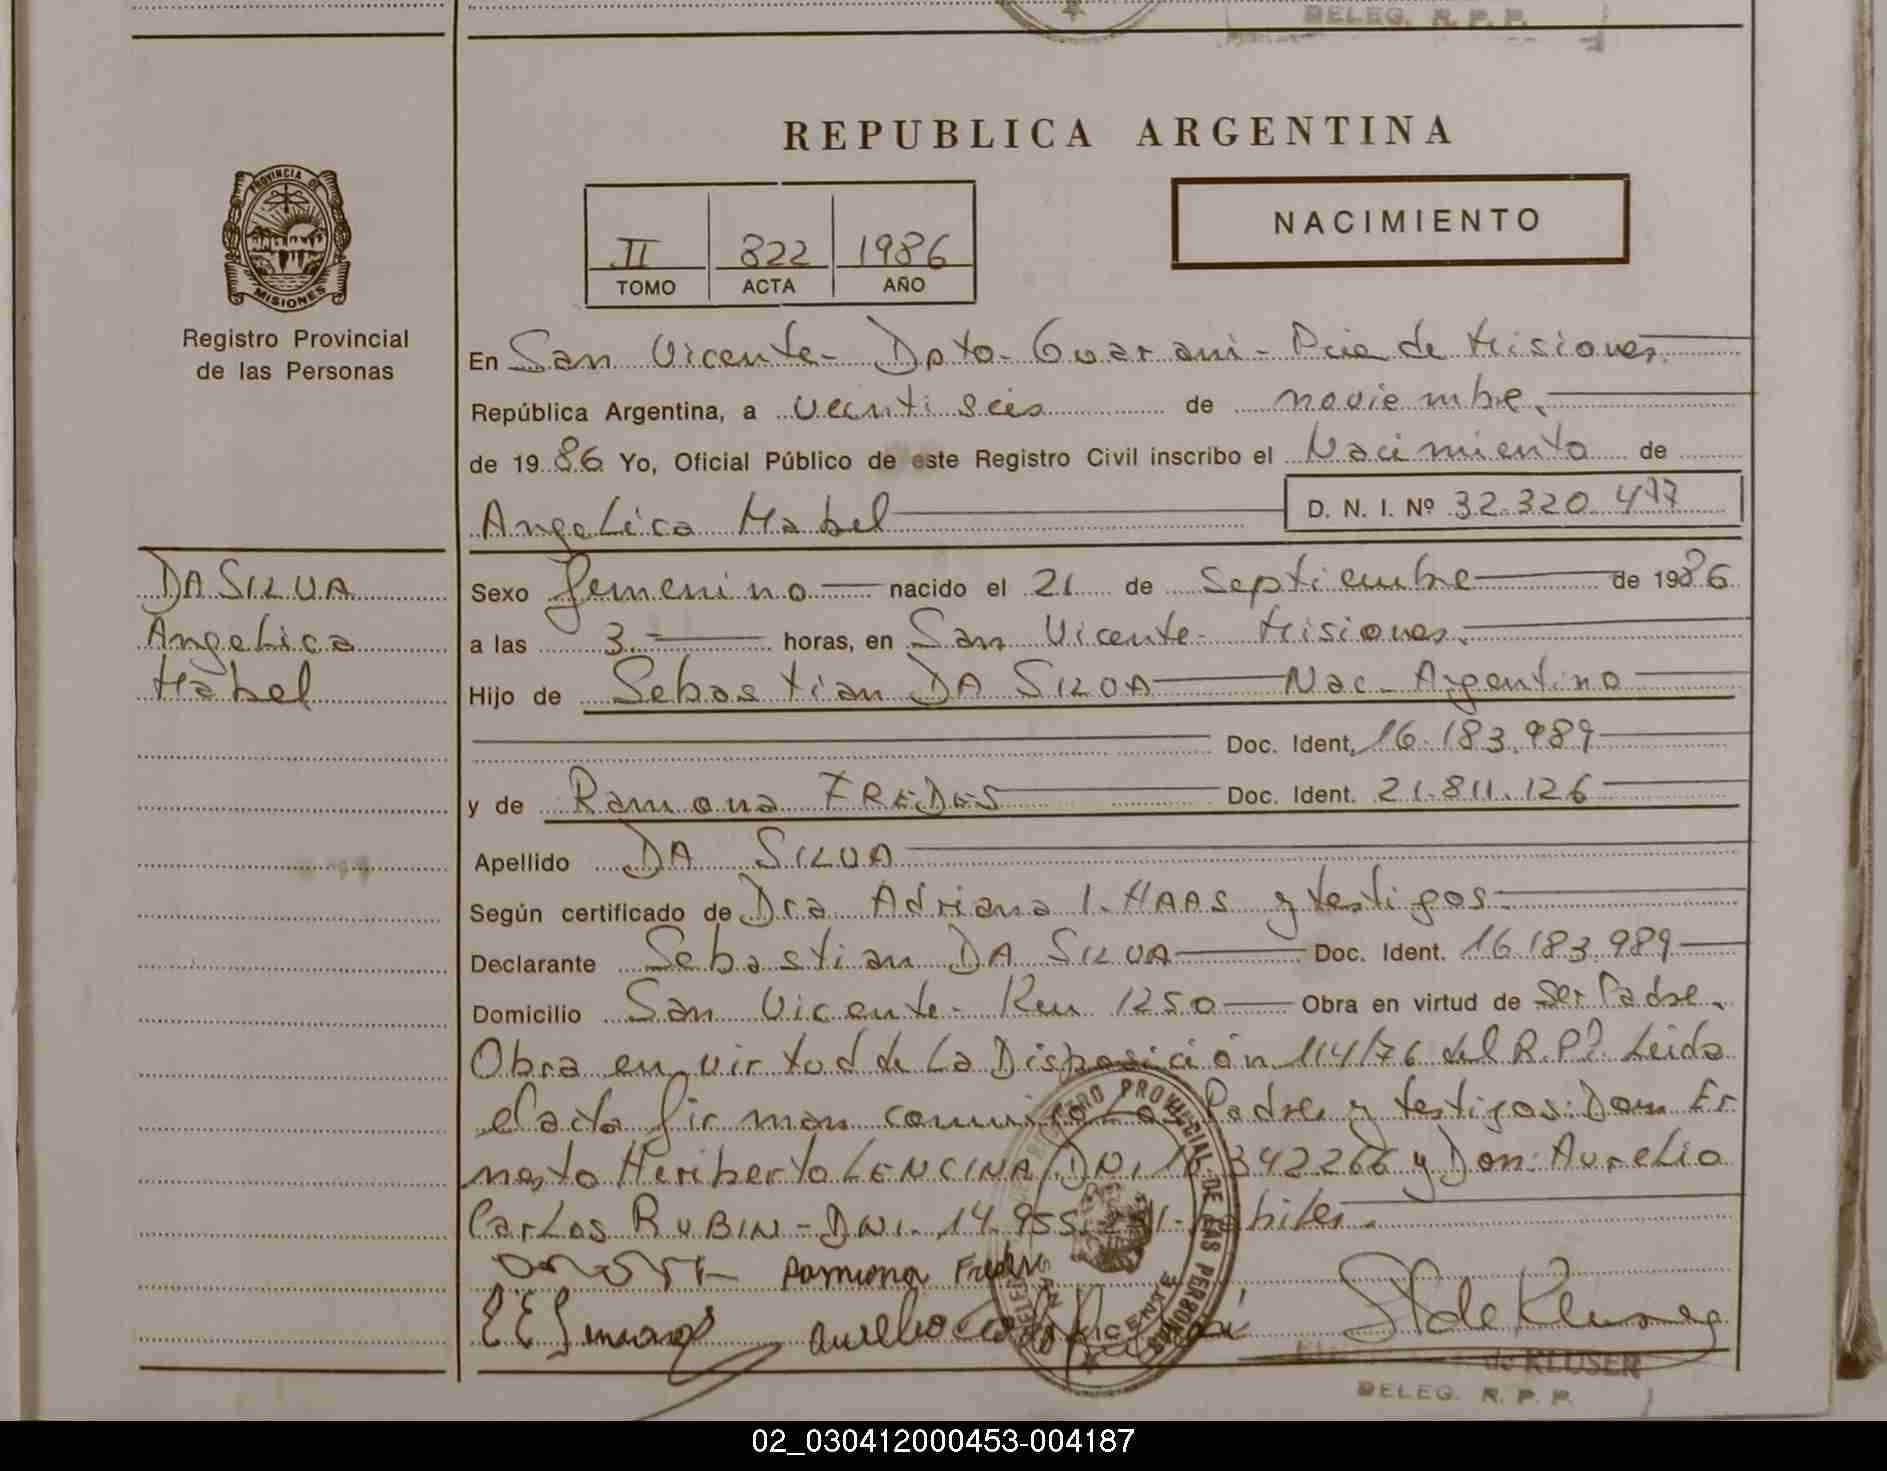 DELEG. R. P. P.
REPUBLICA ARGENTINA
PROVINCIA DE
MISIONES
Registro Provincial
de las Personas
II 822 1986
TOMO ACTA AÑO
NACIMIENTO
En San Vicente - Dpto. Guarani - Pcia de Misiones.
República Argentina, a veintiseis de noviembre.
de 1986 Yo, Oficial Público de este Registro Civil inscribo el Nacimiento de
Angelica Mabel D. N. I. Nº 32.320.477
DA SILVA
Angelica
Mabel
Sexo femenino nacido el 21 de Septiembre de 1986
a las 3.- horas, en San Vicente - Misiones.
Hijo de Sebastian DA SILVA Nac. Argentino
Doc. Ident. 16.183.989
y de Ramona FREDES Doc. Ident. 21.811.126
Apellido DA SILVA
Según certificado de Dra Adriana I. HAAS y testigos.
Declarante Sebastian DA SILVA Doc. Ident. 16.183.989
Domicilio San Vicente - Km 1250 Obra en virtud de Ser Padre.
Obra en virtud de La Disposición 114/76 del R.P.P. Leida
el acta firman conmigo Los Padres y testigos: Don Er
nesto Heriberto LENCINA, DNI y Don Aurelio
Carlos RUBIN - DNI. 14.955. hábiles.
Ramona Fredes
REGISTRO PROVINCIAL DE LAS PERSONAS
SAN VICENTE
de KLUSER
DELEG. R. P. P.
02_030412000453-004187